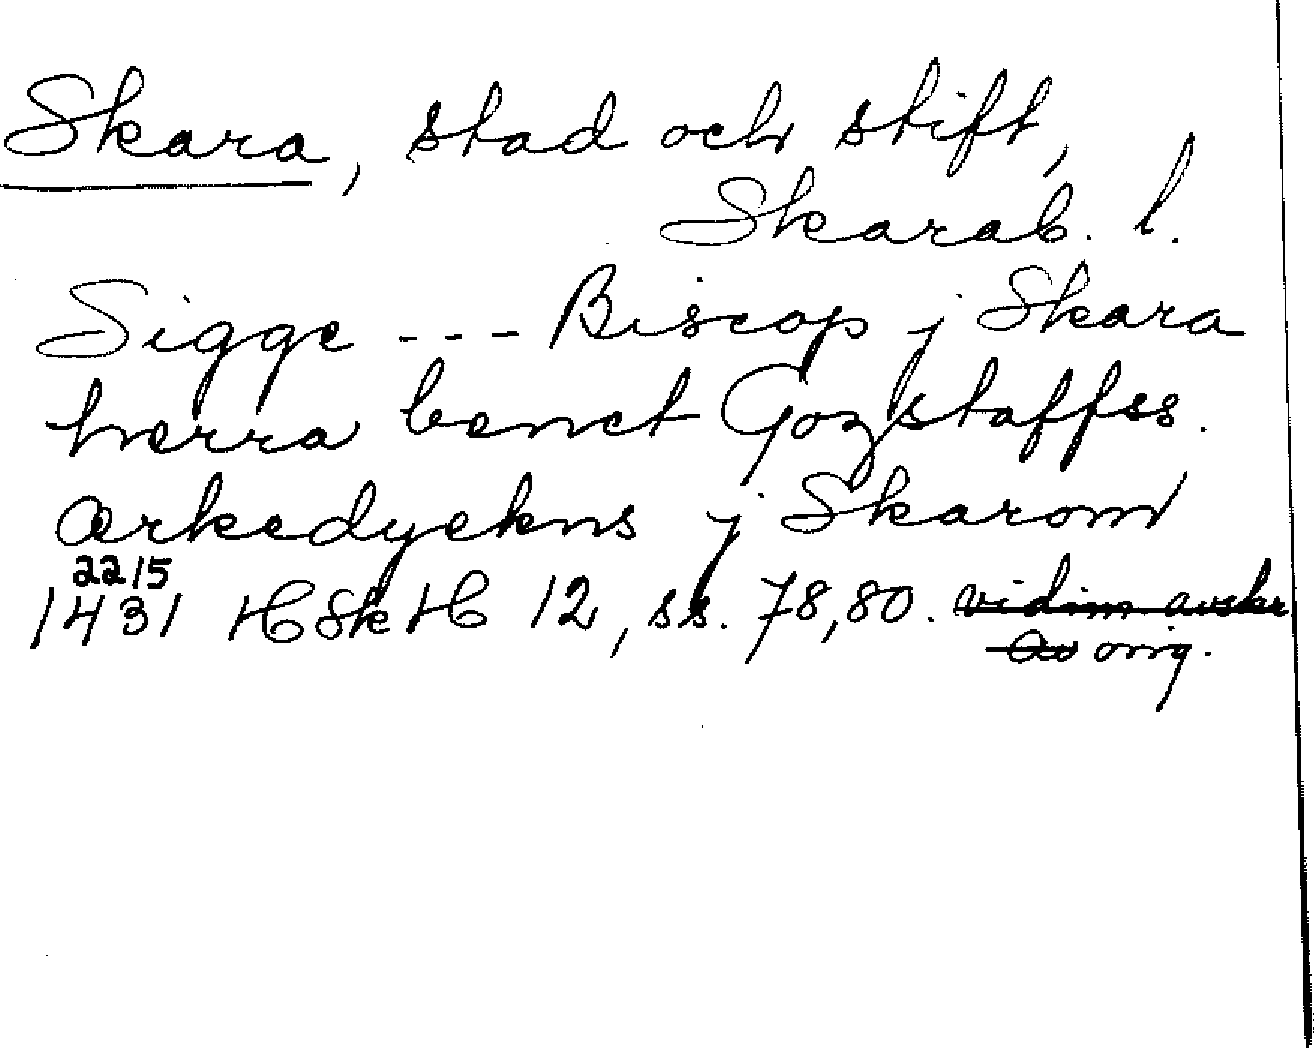 Skara, stad och stift,
Skarab. l.
Sigge --- Biscop j Skara
herra benct Gozstaffss.
ærkedyekns j Skarom
22/5
1431 HSkH 12, ss. 78, 80. vidim avskr
av orig.